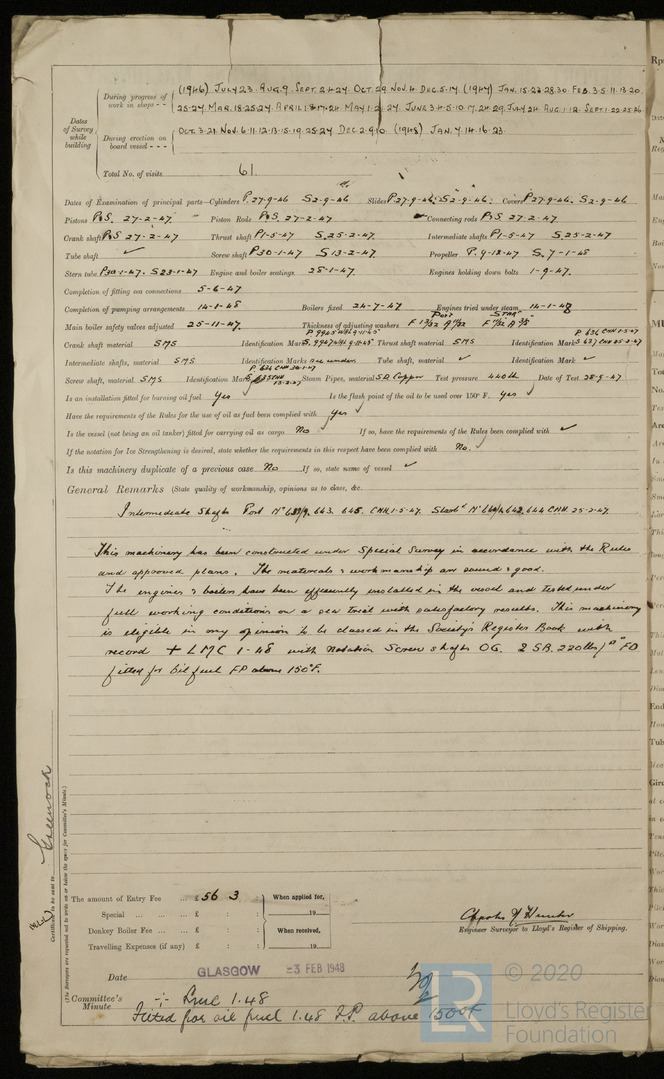 During progress of work in shops - - (1946) JULY 23. AUG. 9. SEPT. 2.4.24. OCT. 29. NOV. 4. DEC. 5.14. (1947) JAN. 15.23.28.30. FEB. 3.5.11.13.20.
25.27. MAR. 18.25.27. APRIL 1.8.17.24. MAY 1.2. 24. JUNE 3.4.5.10.17.24.29. JULY 24. AUG. 1.12. SEPT. 1.22.25.26.
Dates of Survey while building
During erection on board vessel - - - OCT. 3.21. NOV. 6.11.12.13.15.19.25.27 DEC. 2.9.10. (1948) JAN. 7.14.16.23.
Total No. of visits 61.
Dates of Examination of principal parts—Cylinders P. 27.9.46 S 2.9.46 Slides P 27.9.46. S 2.9.46. Covers P 27.9.46. S 2.9.46
Pistons P&S. 27-2-47. Piston Rods P&S. 27-2-47 Connecting rods P&S 27.2.47.
Crank shaft P&S 27-2-47 Thrust shaft P1-5-47 S.25-2-47. Intermediate shafts P1-5-47 S.25-2-47.
Tube shaft ✓ Screw shaft P30-1-47 S 13-2-47. Propeller P. 9-12-47 S. 7-1-48
Stern tube P30-1-47. S 23-1-47 Engine and boiler seatings 28-1-47. Engines holding down bolts 1-9-47.
Completion of fitting sea connections 5-6-47
Completion of pumping arrangements 14-1-48 Boilers fixed 24-7-47 Engines tried under steam 14-1-48
Main boiler safety valves adjusted 25-11-47. Thickness of adjusting washers Port F 13/32 A 11/32 Starb F 11/32 A 3/8
Crank shaft material SMS Identification Mark Thrust shaft material SMS Identification Mark P. 636 CHH 1-5-47 S 637 CHH 25-2-47
Intermediate shafts, material SMS Identification Marks See under Tube shaft, material ✓ Identification Mark ✓
Screw shaft, material SMS Identification Mark Steam Pipes, material S.D. Copper Test pressure 440 lb Date of Test 28-9-47
Is an installation fitted for burning oil fuel Yes Is the flash point of the oil to be used over 150° F. Yes
Have the requirements of the Rules for the use of oil as fuel been complied with Yes
Is the vessel (not being an oil tanker) fitted for carrying oil as cargo No If so, have the requirements of the Rules been complied with ✓
If the notation for Ice Strengthening is desired, state whether the requirements in this respect have been complied with No.
Is this machinery duplicate of a previous case No If so, state name of vessel ✓
General Remarks (State quality of workmanship, opinions as to class, &c.
Intermediate Shafts Port No 643. 645. CHH. 1-5-47. Starbd No 642. 644 CHH. 25-2-47.
This machinery has been constructed under Special Survey in accordance with the Rules
and approved plans. The materials & workmanship are sound & good.
The engines & boilers have been efficiently installed in the vessel and tested under
full working conditions on a sea trial with satisfactory results. This machinery
is eligible in my opinion to be classed in the Society's Register Book with
record + LMC 1-48 with notation Screw shafts OG. 2 SB. 220 lbs/□" FD
fitted for oil fuel FP above 150°F.
Certificate to be sent to Greenock
(The Surveyors are requested not to write on or below the space for Committee's Minute.)
The amount of Entry Fee ... £ 56 : 3 : When applied for,
Special ... ... ... £ : : 19
Donkey Boiler Fee ... ... £ : : When received,
Travelling Expenses (if any) £ : : 19
Engineer Surveyor to Lloyd's Register of Shipping.
Date GLASGOW -3 FEB 1948
Committee's Minute + LMC 1.48
Fitted for oil fuel 1.48 F.P. above 150°F
LR © 2020
Lloyd's Register
Foundation